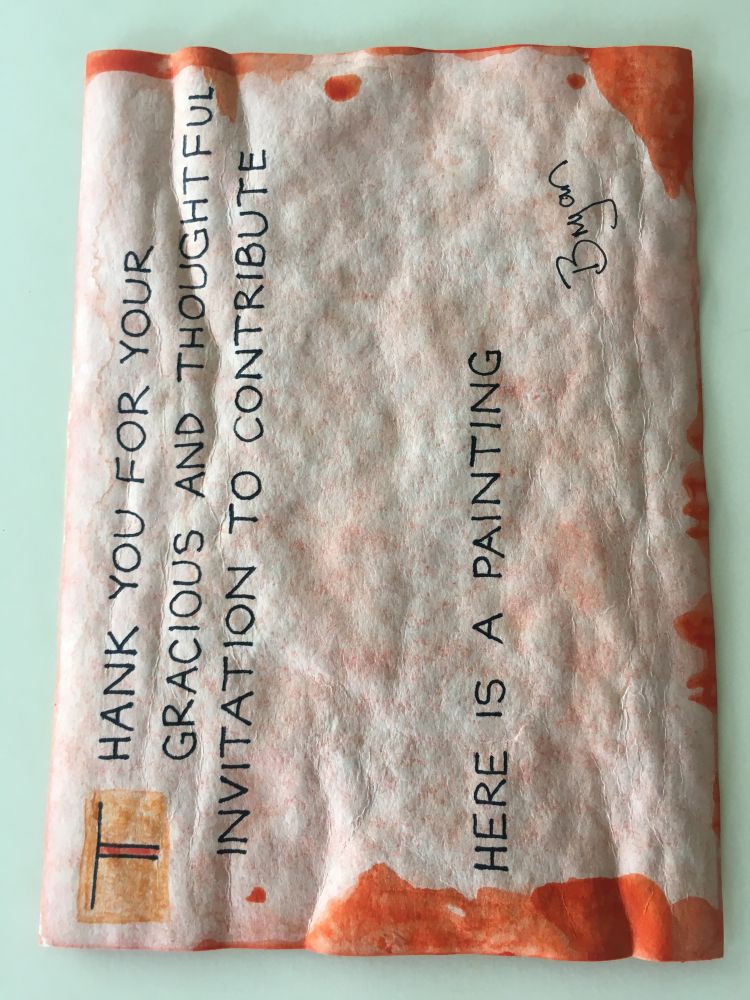 THANK YOU FOR YOUR
GRACIOUS AND THOUGHTFUL
INVITATION TO CONTRIBUTE
HERE IS A PAINTING
Bryan